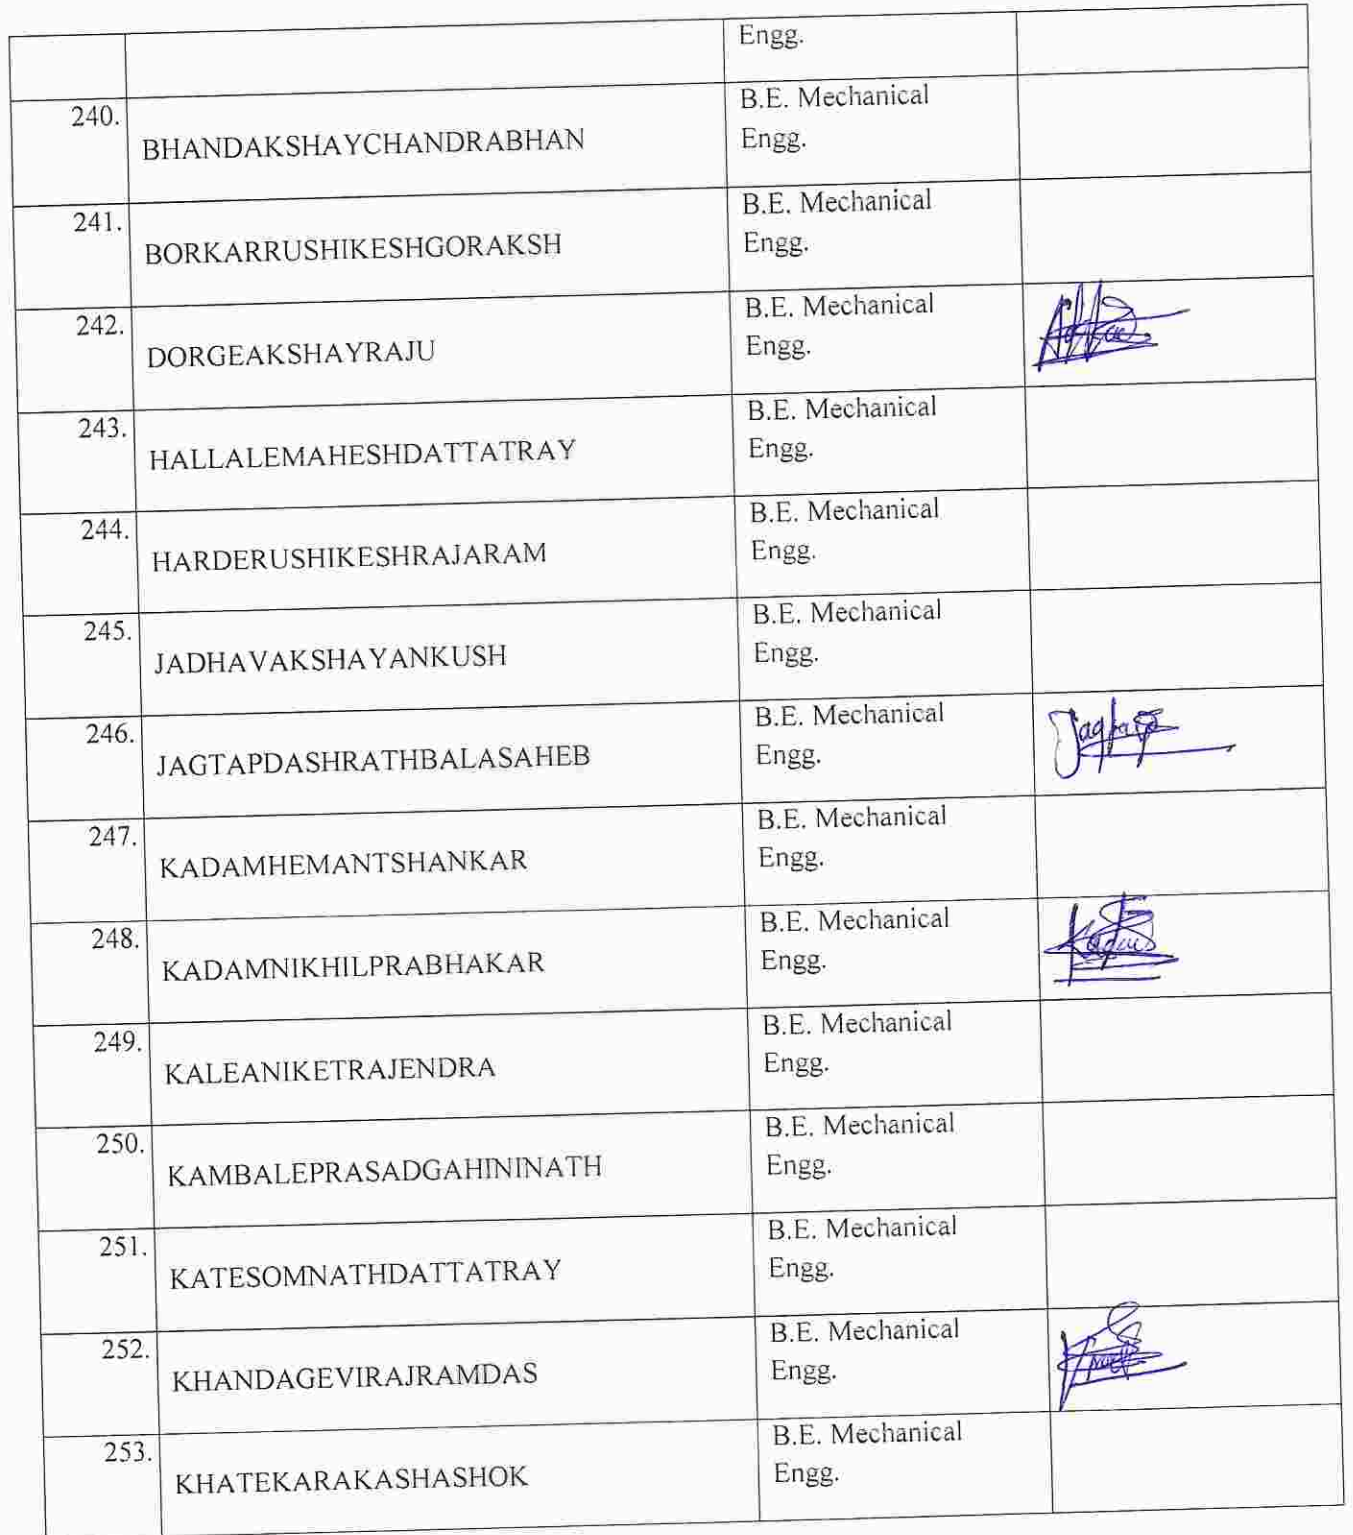 Engg.
240. BHANDAKSHAYCHANDRABHAN B.E. Mechanical
Engg.
241. BORKARRUSHIKESHGORAKSH B.E. Mechanical
Engg.
242. DORGEAKSHAYRAJU B.E. Mechanical
Engg.
243. HALLALEMAHESHDATTATRAY B.E. Mechanical
Engg.
244. HARDERUSHIKESHRAJARAM B.E. Mechanical
Engg.
245. JADHAVAKSHAYANKUSH B.E. Mechanical
Engg.
246. JAGTAPDASHRATHBALASAHEB B.E. Mechanical
Engg.
247. KADAMHEMANTSHANKAR B.E. Mechanical
Engg.
248. KADAMNIKHILPRABHAKAR B.E. Mechanical
Engg.
249. KALEANIKETRAJENDRA B.E. Mechanical
Engg.
250. KAMBALEPRASADGAHININATH B.E. Mechanical
Engg.
251. KATESOMNATHDATTATRAY B.E. Mechanical
Engg.
252. KHANDAGEVIRAJRAMDAS B.E. Mechanical
Engg.
253. KHATEKARAKASHASHOK B.E. Mechanical
Engg.